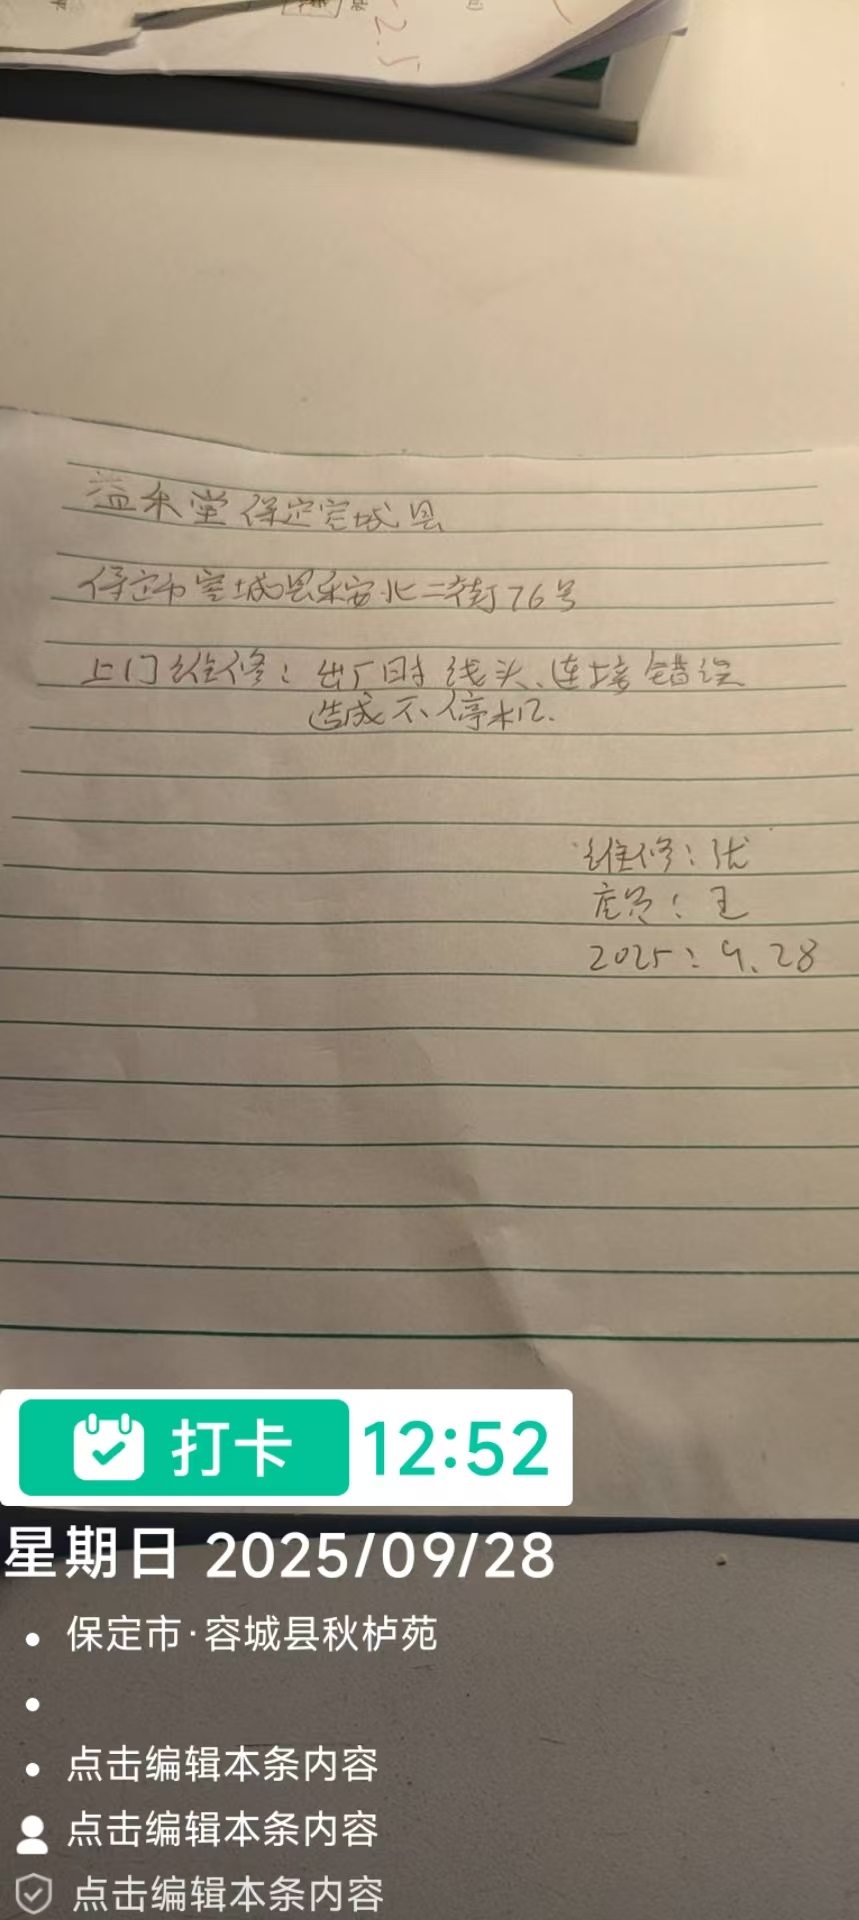 2.5
益禾堂保定容城县
保定市容城县禾安北二街76号
上门维修：出厂时线头、连接错误
造成不停机.
维修：张
店员：王
2025：9.28
打卡 12:52
星期日 2025/09/28
保定市·容城县秋栌苑
点击编辑本条内容
点击编辑本条内容
点击编辑本条内容